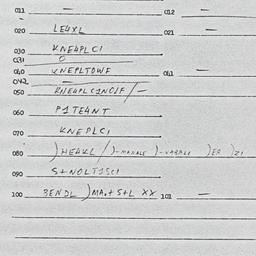 011 — 012 —
020 LE4XL 021 —
030 KNE4PLCI
031 0
040 KNEPLTOWF 041 —
042 —
050 KNE4PLCINCIF / —
060 PITE4NT
070 KNEPLCI
080 )HE4KL / )-MAHALE )-VARALE )ER )ZI
090 S+NOLTISCI
100 BENDL )MA.+ S+L XX 101 —